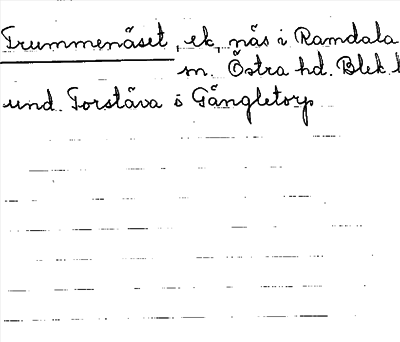 Trummenäset, ek, näs i Ramdala
sn. Östra hd. Blek. l
und. Torstäva o Gängletorp